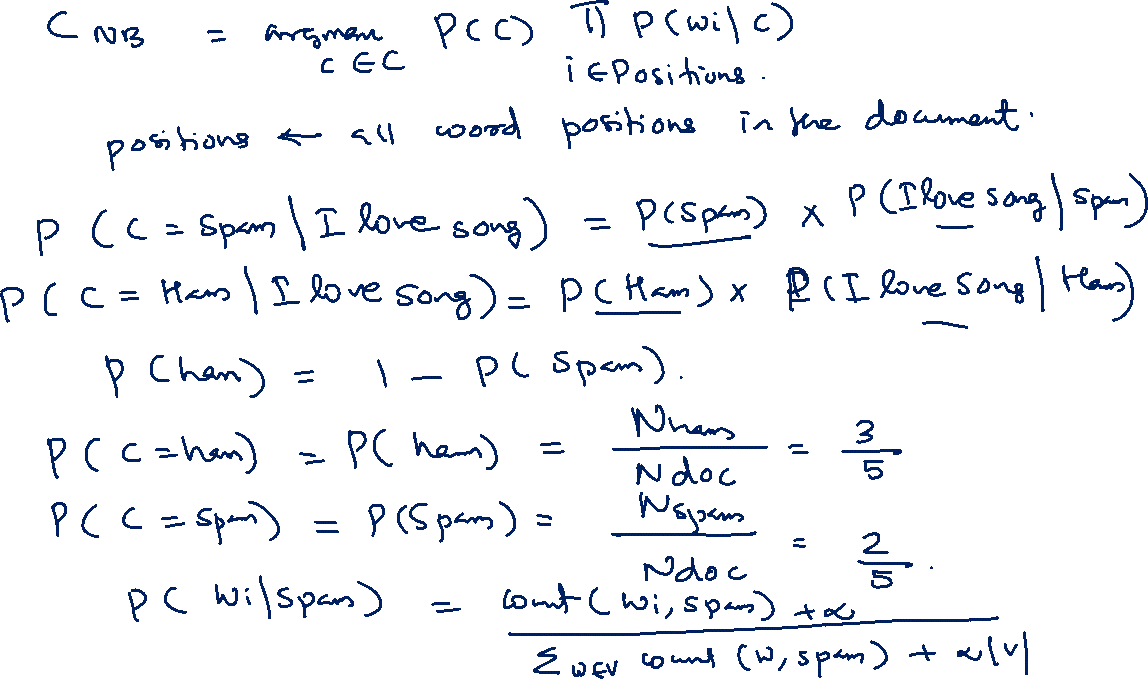 C NB = argmax P(C) ∏ P(wi|c)
c ∈ C i ∈ Positions.
positions ← all word positions in the document.
P (C = Spam | I love song) = P(Spam) x P(I love song | Spam)
P(C = Ham | I love song) = P(Ham) x P(I love song | Ham)
P(ham) = 1 - P(Spam).
P(C=ham) = P(ham) = Nham / Ndoc = 3/5
P(C = spam) = P(Spam) = Nspam / Ndoc = 2/5.
P(wi|spam) = count(wi, spam) + α
Σ w∈V count (w, spam) + α|V|